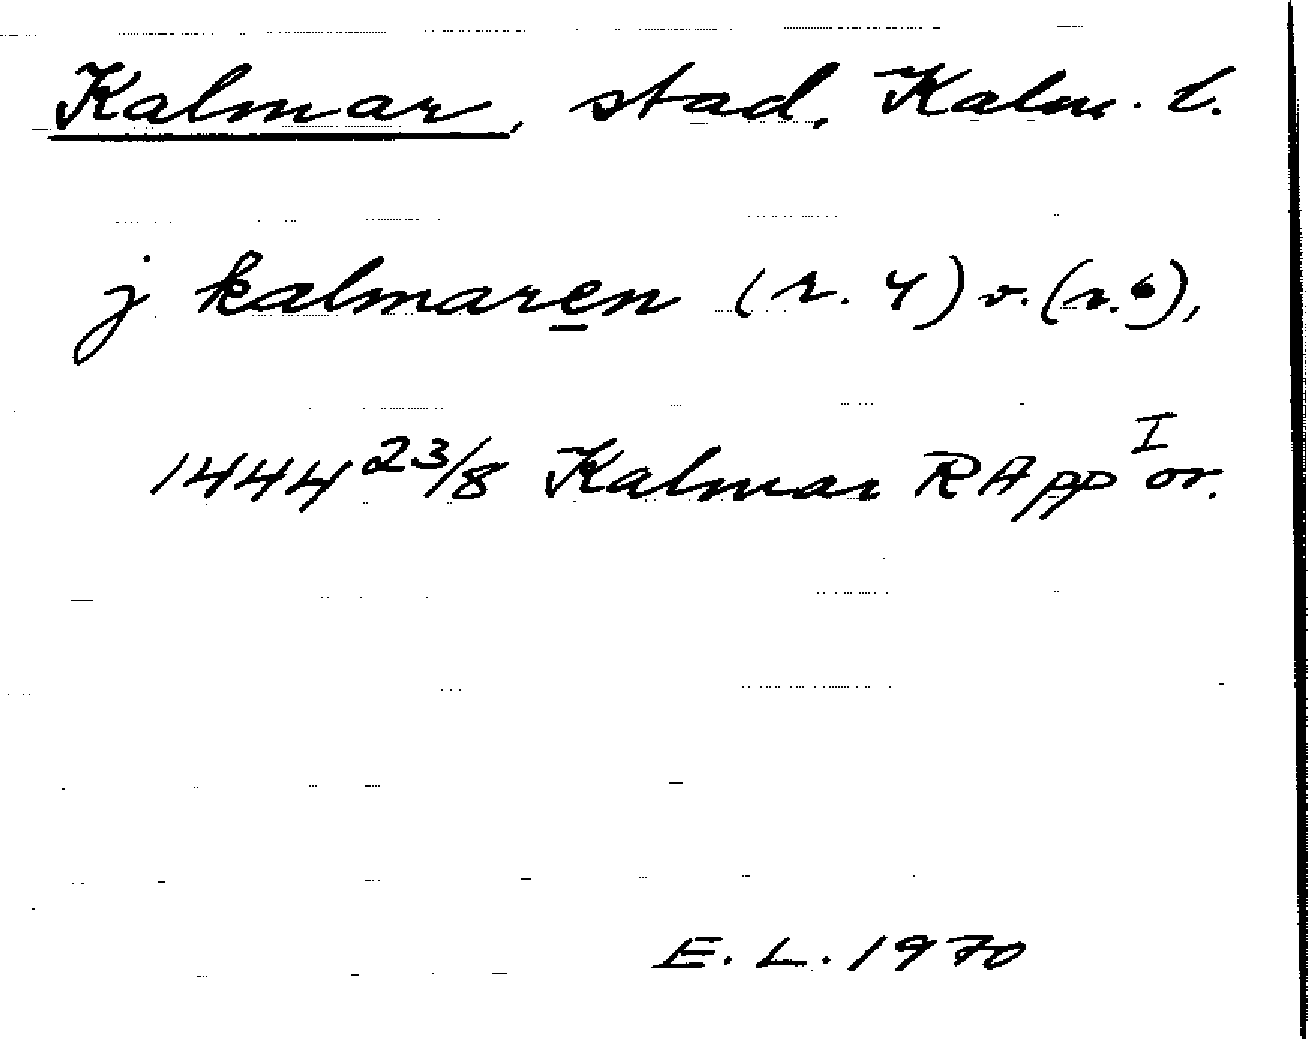 Kalmar, stad, Kalm. l.
j kalmaren (r. 4) v. (r. 6),
1444 23/8 Kalmar RApp I or.
E. L. 1970